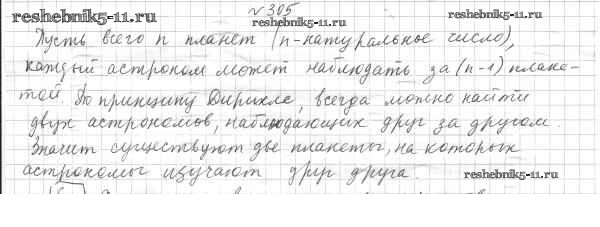 reshebnik5-11.ru № 305 reshebnik5-11.ru reshebnik5-11.ru
Пусть всего n планет (n-натуральное число),
каждый астроном может наблюдать за (n-1) плане-
той. По принципу Дирихле, всегда можно найти
двух астрономов, наблюдающих друг за другом.
Значит существуют две планеты, на которых
астрономы изучают друг друга. reshebnik5-11.ru